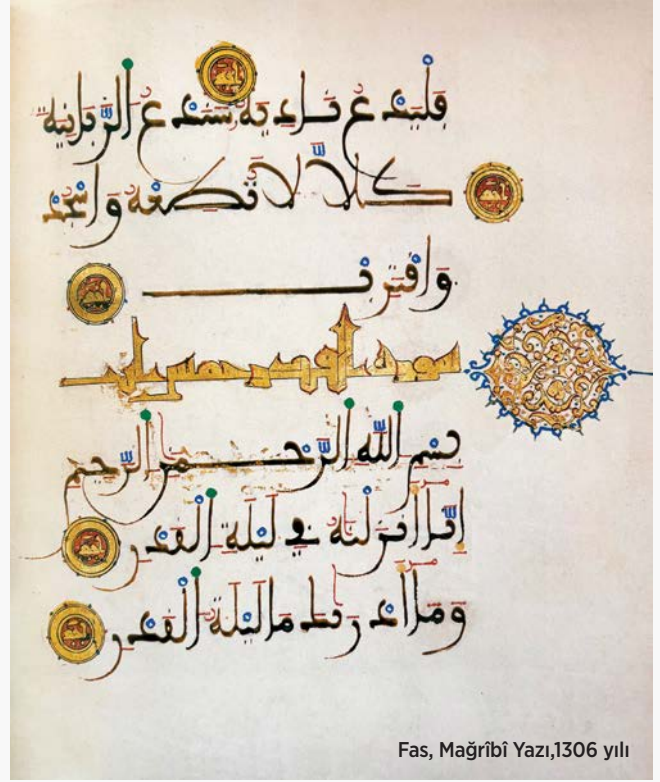 فَلْيَدْعُ نَادِيَهُ سَنَدْعُ الزَّبَانِيَةَ
كَلَّا لَا تُطِعْهُ وَاسْجُدْ
وَاقْتَرِبْ
سورة القدر خمس ايات
بِسْمِ اللَّهِ الرَّحْمَٰنِ الرَّحِيمِ
إِنَّا أَنْزَلْنَٰهُ فِي لَيْلَةِ الْقَدْرِ
وَمَا أَدْرَيٰكَ مَا لَيْلَةُ الْقَدْرِ
Fas, Mağrîbî Yazı,1306 yılı